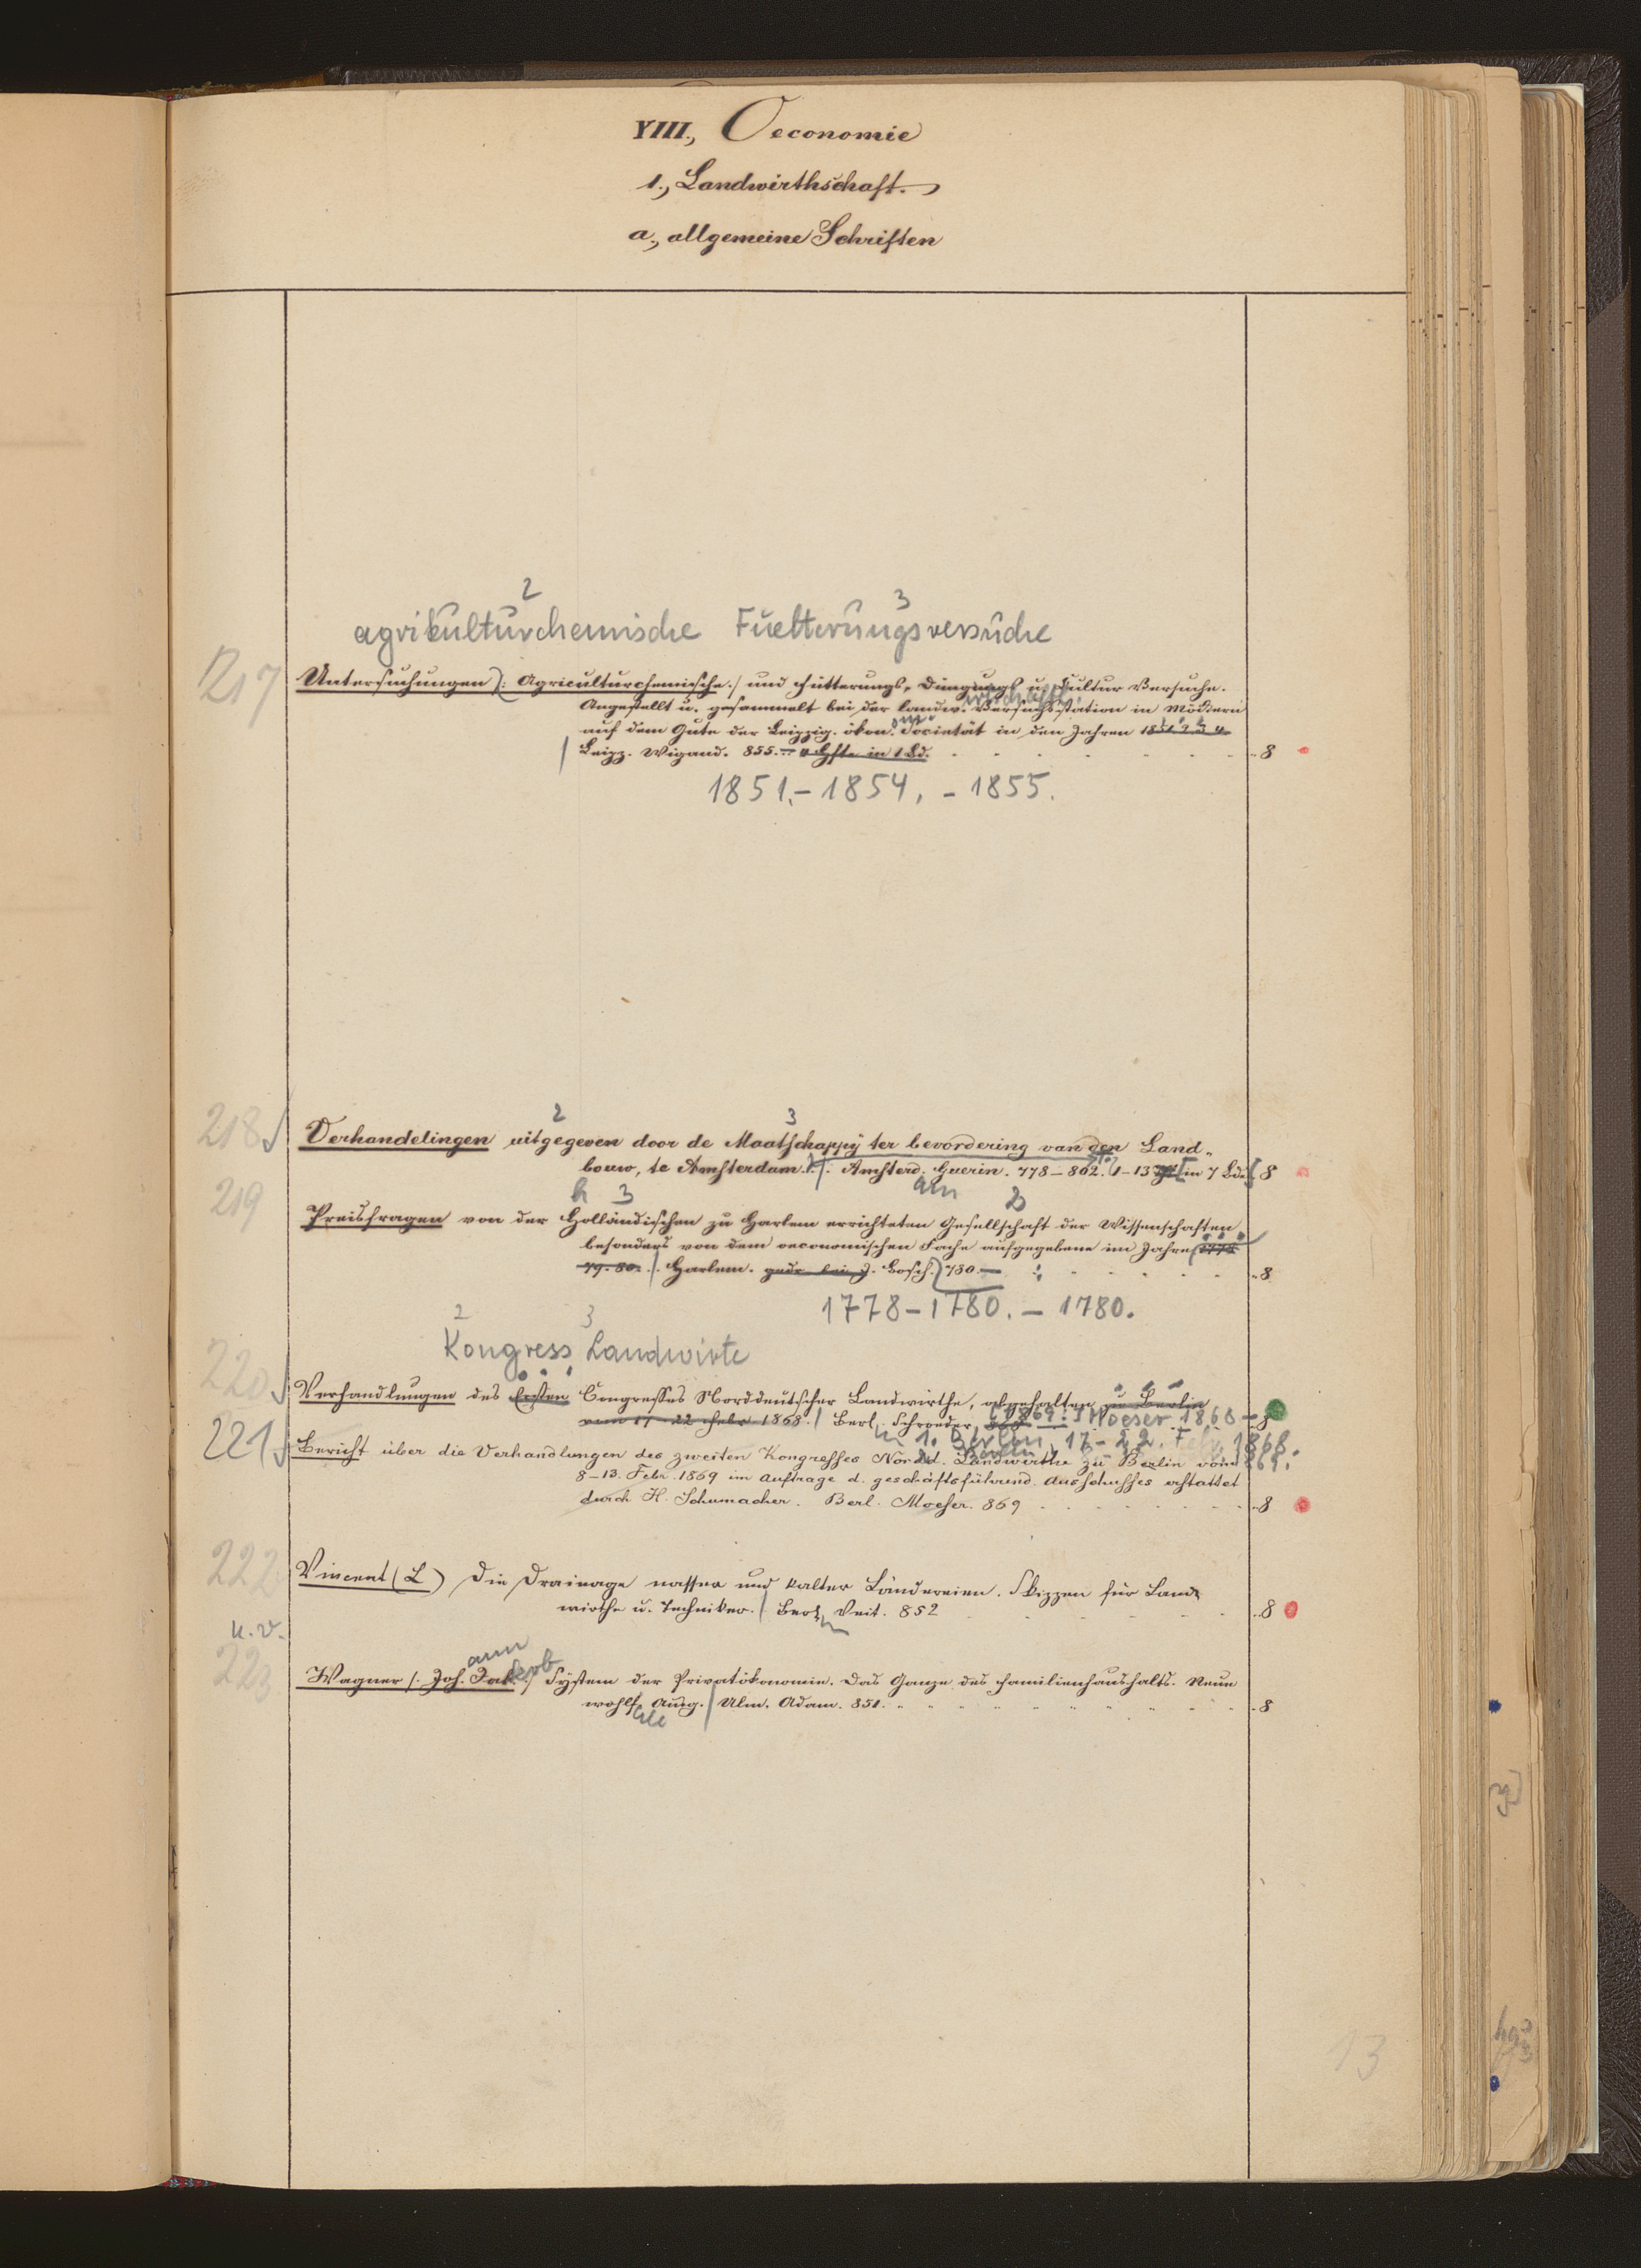 VIII., Oeconomie
1., Landwirthschaft.
a., allgemeine Schriften
2 3
agrikulturchemische Fuetterungsversuche
217
Untersuchungen /: Agriculturchemische :/ und Fütterungs, Düngungs u. Kultur Versuche.
Angestellt u. gesammelt bei der landw. Versuchsstation in Möckern
auf dem Gute der Leipzig. ökon. Societät in den Jahren 1851. 2. 3. 4.
Leipz. Wigand. 855. — 4 Hfte in 1 Bd. 8
1851.-1854. - 1855.
2 3
218
Verhandelingen uitgegeven door de Maatschappÿ ter bevordering van den Land„
bouw, te Amsterdam. Amsterd. Guerin. 778-802. 1-13 in 7 Bde 8
h 3 am 2
219
Preisfragen von der Holländischen zu Harlem errichteten Gesellschaft der Wissenschaften
besonders von dem oeconomischen Fache aufgegebene im Jahre 1778
79. 80. Harlem. gedr. bei J. Bosch. 780. — 8
1778-1780. - 1780.
2 3
Kongress Landwirte
220
Verhandlungen des Ersten Congresses Norddeutscher Landwirthe, abgehalten zu Berlin
vom 17-22 Febr. 1868. Berl. Schroeder 8
1869: Moeser 1868 -
1. Berlin, 17-22. Feb. 1868.
221
Bericht über die Verhandlungen des zweiten Kongresses Nordd. Landwirthe zu Berlin vom
8-13. Febr. 1869 im Auftrage d. geschäftsführend. Ausschusses erstattet
durch H. Schumacher. Berl. Moeser. 869 8
222
Vincent (L) Die Drainage nasser und kalter Ländereien. Skizzen für Land-
wirthe u. Techniker. Berl. Veit. 852 8
u. v.
ann
223
Wagner /: Joh. Jak. :/ System der Privatökonomie. Das Ganze des Familienhaushalts. Neue
wohlf. Ausg. Ulm. Adam. 851. 8
13